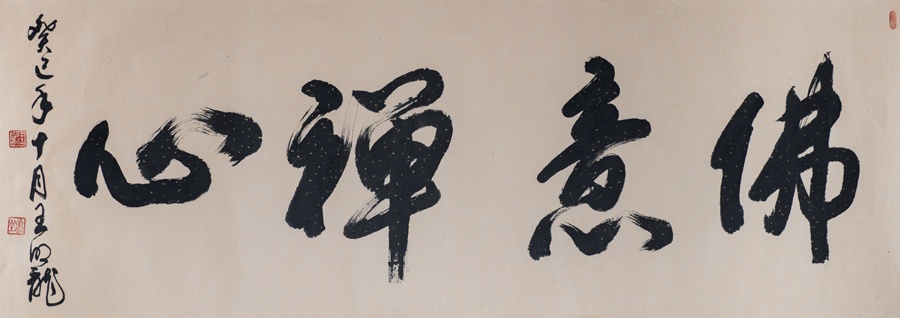 佛意禪心
癸巳年十月王明龍